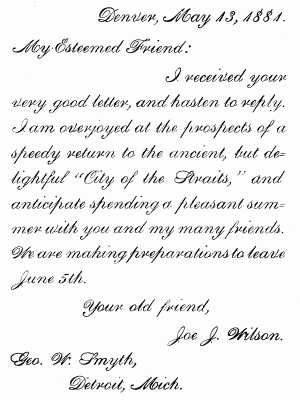 Denver, May 13, 1881.
My Esteemed Friend:
I received your
very good letter, and hasten to reply.
I am overjoyed at the prospects of a
speedy return to the ancient, but de=
lightful "City of the Straits," and
anticipate spending a pleasant sum=
mer with you and my many friends.
We are making preparations to leave
June 5th.
Your old friend,
Joe J. Wilson.
Geo. W. Smyth,
Detroit, Mich.